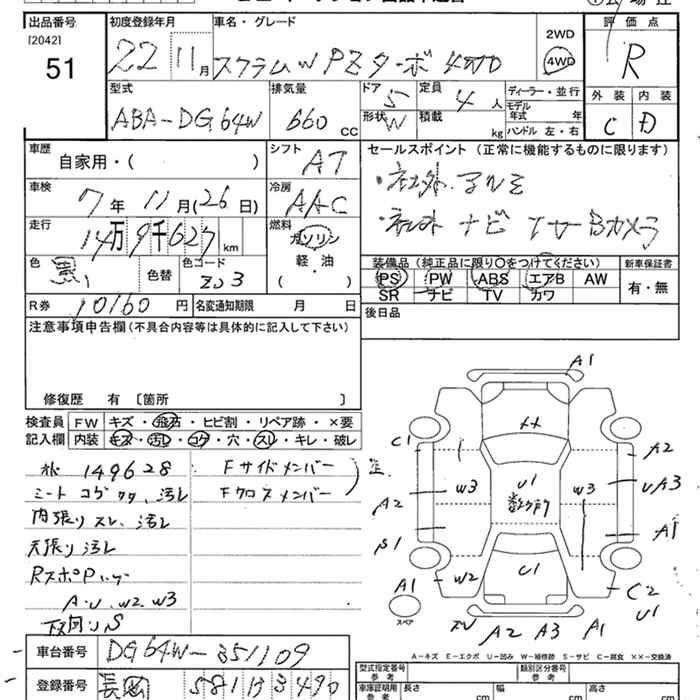 出品番号 初度登録年月 車名・グレード 評価点
[2042]
51 22 11月 スクラムW PZターボ 4WD 2WD 4WD R
型式 排気量 ドア 5 定員 4人 ディーラー・並行 外装 内装
モデル年式 年
ABA-DG64W 660 cc 形状 W 積載 kg ハンドル 左・右 C D
車歴 自家用・( ) シフト AT セールスポイント (正常に機能するものに限ります)
車検 7年 11月(26日) 冷房 AAC ・社外アルミ
走行 14万9千627km 燃料 ガソリン ・社外ナビ Bカメラ
軽・油
( )
色 黒 色替 色コード ZJ3 装備品 (純正品に限り○をつけてください) 新車保証書
PS PW ABS エアB AW 有・無
SR ナビ TV カワ
R券 10160円 名変通知期限 月 日 後日品
注意事項申告欄(不具合内容等は具体的に記入して下さい)
修復歴 有 [箇所 ]
検査員 FW キズ・飛石・ヒビ割・リペア跡・×要
記入欄 内装 キズ・汚レ・コゲ・穴・スレ・キレ・破レ
149628 Fサイドメンバー
シート コゲ 汚レ Fクロスメンバー
内張りスレ、汚レ
天張り汚レ
A・U、W2 W3
下回りS
A1
XX
C1 A2
W3 U1 W3 UA3
A2 数ヶ所
S1 A1
A1 W2 U1 C2
スペア U1
A2 A3 A1
A−キズ E−エクボ U−凹み W−補修跡 S−サビ C−腐食 XX−交換済
車台番号 DG64W-351109
登録番号 長岡 581 490
型式指定番号 参考 類別区分番号 参考
車庫証明用 参考 長さ cm 幅 cm 高さ cm